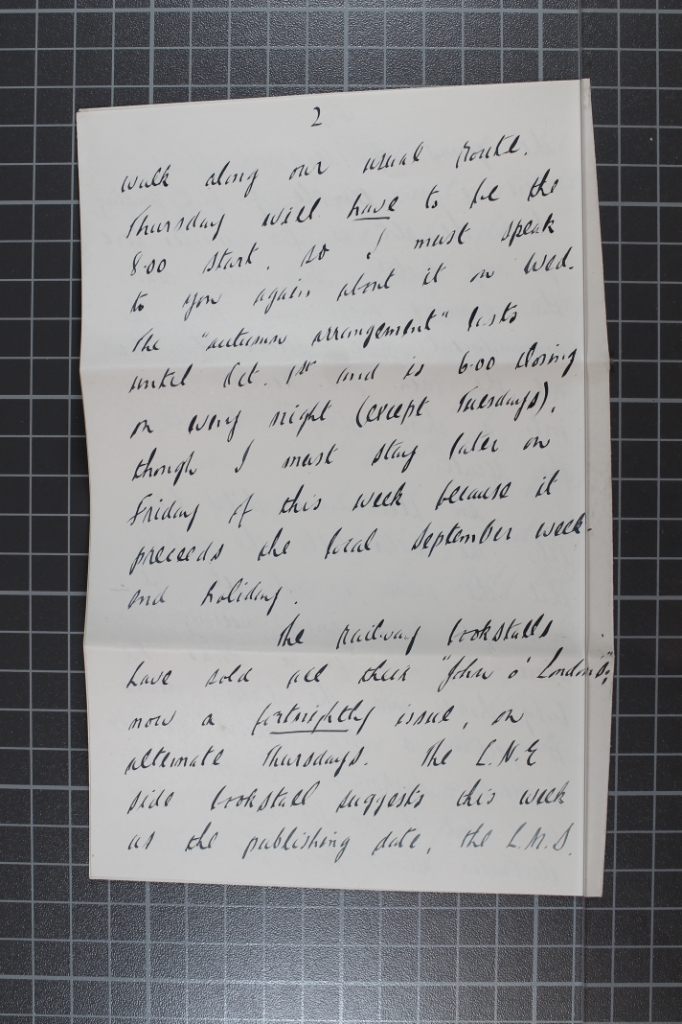 2
walk along our usual route.
Thursday will have to be the
8.00 start, so I must speak
to you again about it on Wed.
The "autumn arrangement" lasts
until Oct. 1st and is 6.00 closing
on every night (except Tuesdays),
though I must stay later on
Friday of this week because it
preceeds the local September week-
end holiday.
The railway bookstalls
have sold all their "John o' London's",
now a fortnightly issue, on
alternate Thursdays. The L.N.E
side bookstall suggests this week
as the publishing date, the L.M.S.